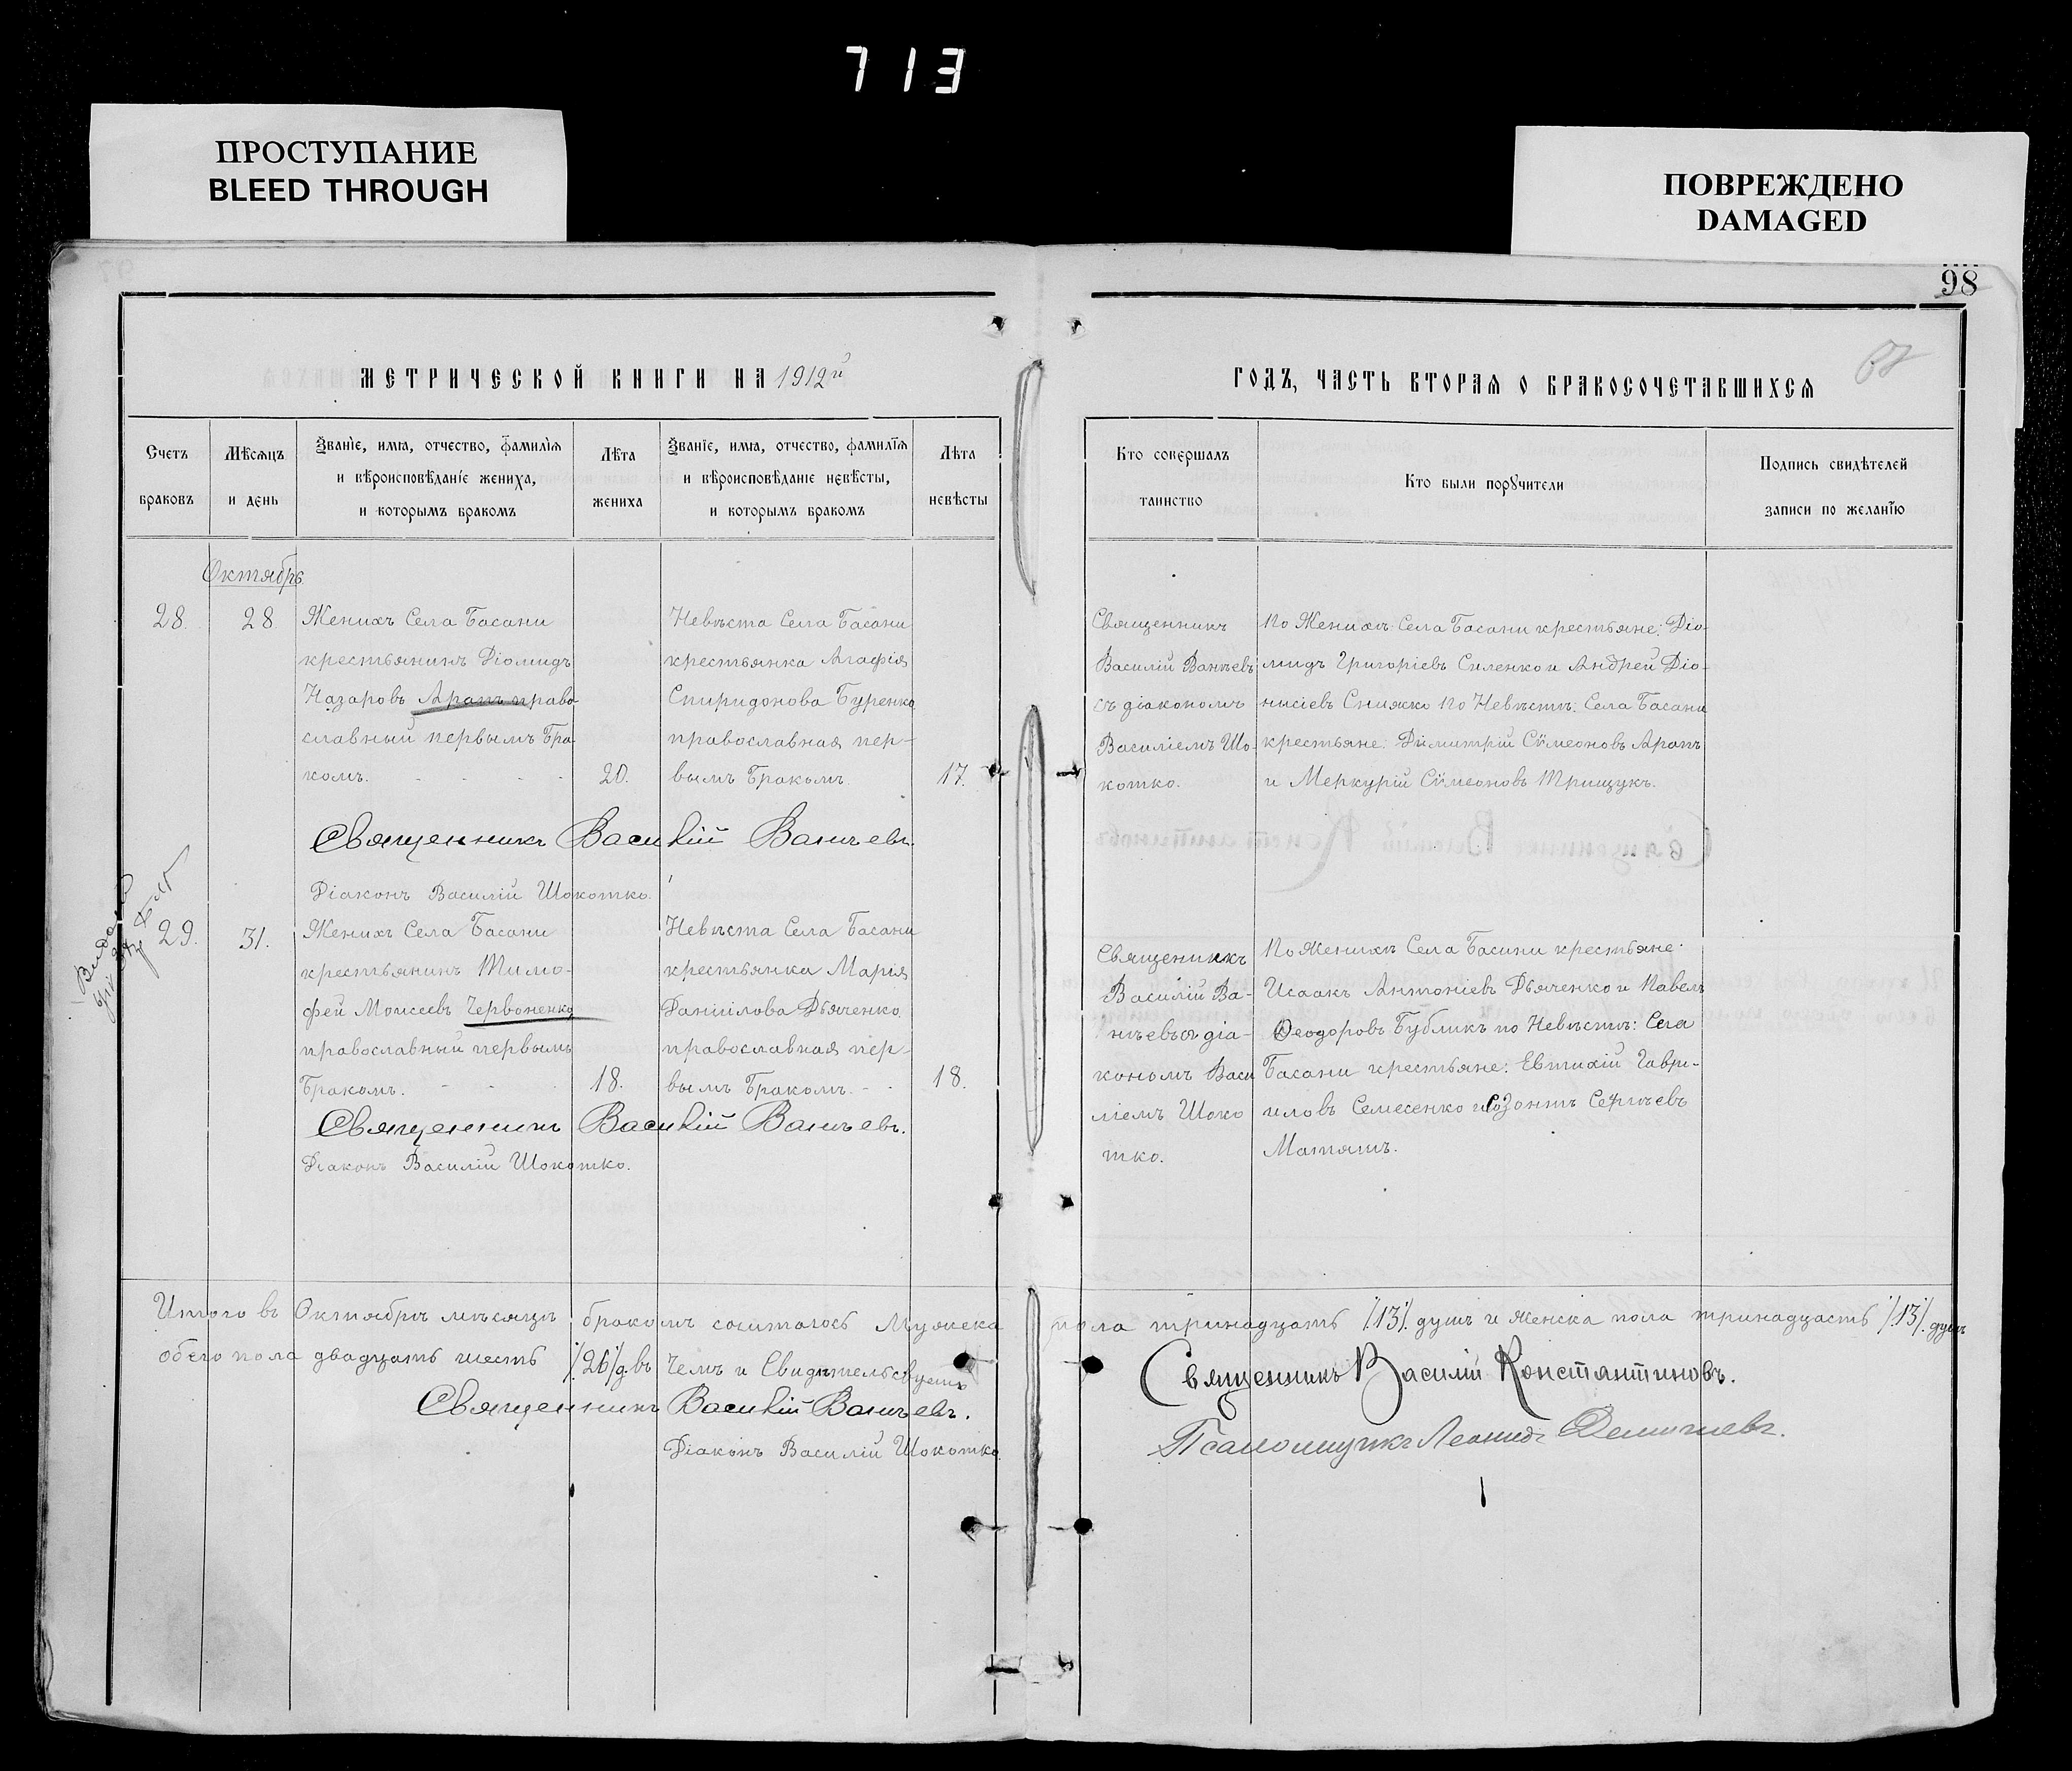 713
ПРОСТУПАНИЕ
BLEED THROUGH
ПОВРЕЖДЕНО
DAMAGED
98
МЕТРИЧЕСКОЙ КНИГИ НА 1912й
Счетъ
браковъ
Мѣсяцъ
и день
Званіе, имя, отчество, фамилія
и вѣроисповѣданіе жениха,
и которымъ бракомъ
Лѣта
жениха
Званіе, имя, отчество, фамилія
и вѣроисповѣданіе невѣсты,
и которымъ бракомъ
Лѣта
невѣсты
Октябрь
28.
28
Женихъ Села Басани
крестьянинъ Діомидъ
Назаровъ Арапъ право
славный первымъ Бра
комъ.
20.
Невѣста Села Басани
крестьянка Агафія
Спиридонова Буренко
православная пер-
вымъ Бракомъ.
17.
Священникъ Василій Ванѣевъ.
Діаконъ Василій Шокотко.
29.
31.
Женихъ Села Басани
крестьянинъ Тимо-
фей Моисеевъ Червоненко
православный первымъ
Бракомъ.
18.
Невѣста Села Басани
крестьянка Марія
Даніилова Дьяченко
православная пер-
вымъ Бракомъ.
18.
Священникъ Василій Ванѣевъ.
Діаконъ Василій Шокотко.
Итого въ Октябрѣ мѣсяцѣ бракомъ сочталось Мужеска
обего пола двадцать шесть /26/ д. въ Чемъ и Свидѣтельсвуемъ
Священникъ Василій Ванѣевъ.
Діаконъ Василій Шокотко.
ГОДЪ, ЧАСТЬ ВТОРАЯ О БРАКОСОЧЕТАВШИХСЯ
Кто совершалъ
таинство
Кто были поручители
Подпись свидѣтелей
записи по желанію
Священникъ
Василій Ванѣевъ
съ діакономъ
Василіемъ Шо-
котко.
По Женихѣ: Села Басани крестьяне: Діо-
мидъ Григоріевъ Силенко и Андрей Діо-
нисіевъ Снижко По Невѣстѣ: Села Басани
крестьяне: Димитрій Симеоновъ Арапъ
и Меркурій Симеоновъ Трищукъ.
Священникъ
Василій Ва-
нѣевъ съ діа-
кономъ Васи
ліемъ Шоко
тко.
По Женихѣ Села Басани крестьяне:
Исаакъ Антоніевъ Дьяченко и Павелъ
Ѳеодоровъ Бубликъ по Невѣстѣ: Села
Басани крестьяне: Евтихій Гаври-
иловъ Семесенко и Созонтъ Сергѣевъ
Матяшъ.
пола тринадцать /13/ душъ и Женска пола тринадцасть /13/ душъ
Священникъ Василій Константиновъ.
Псаломщикъ Леонидъ